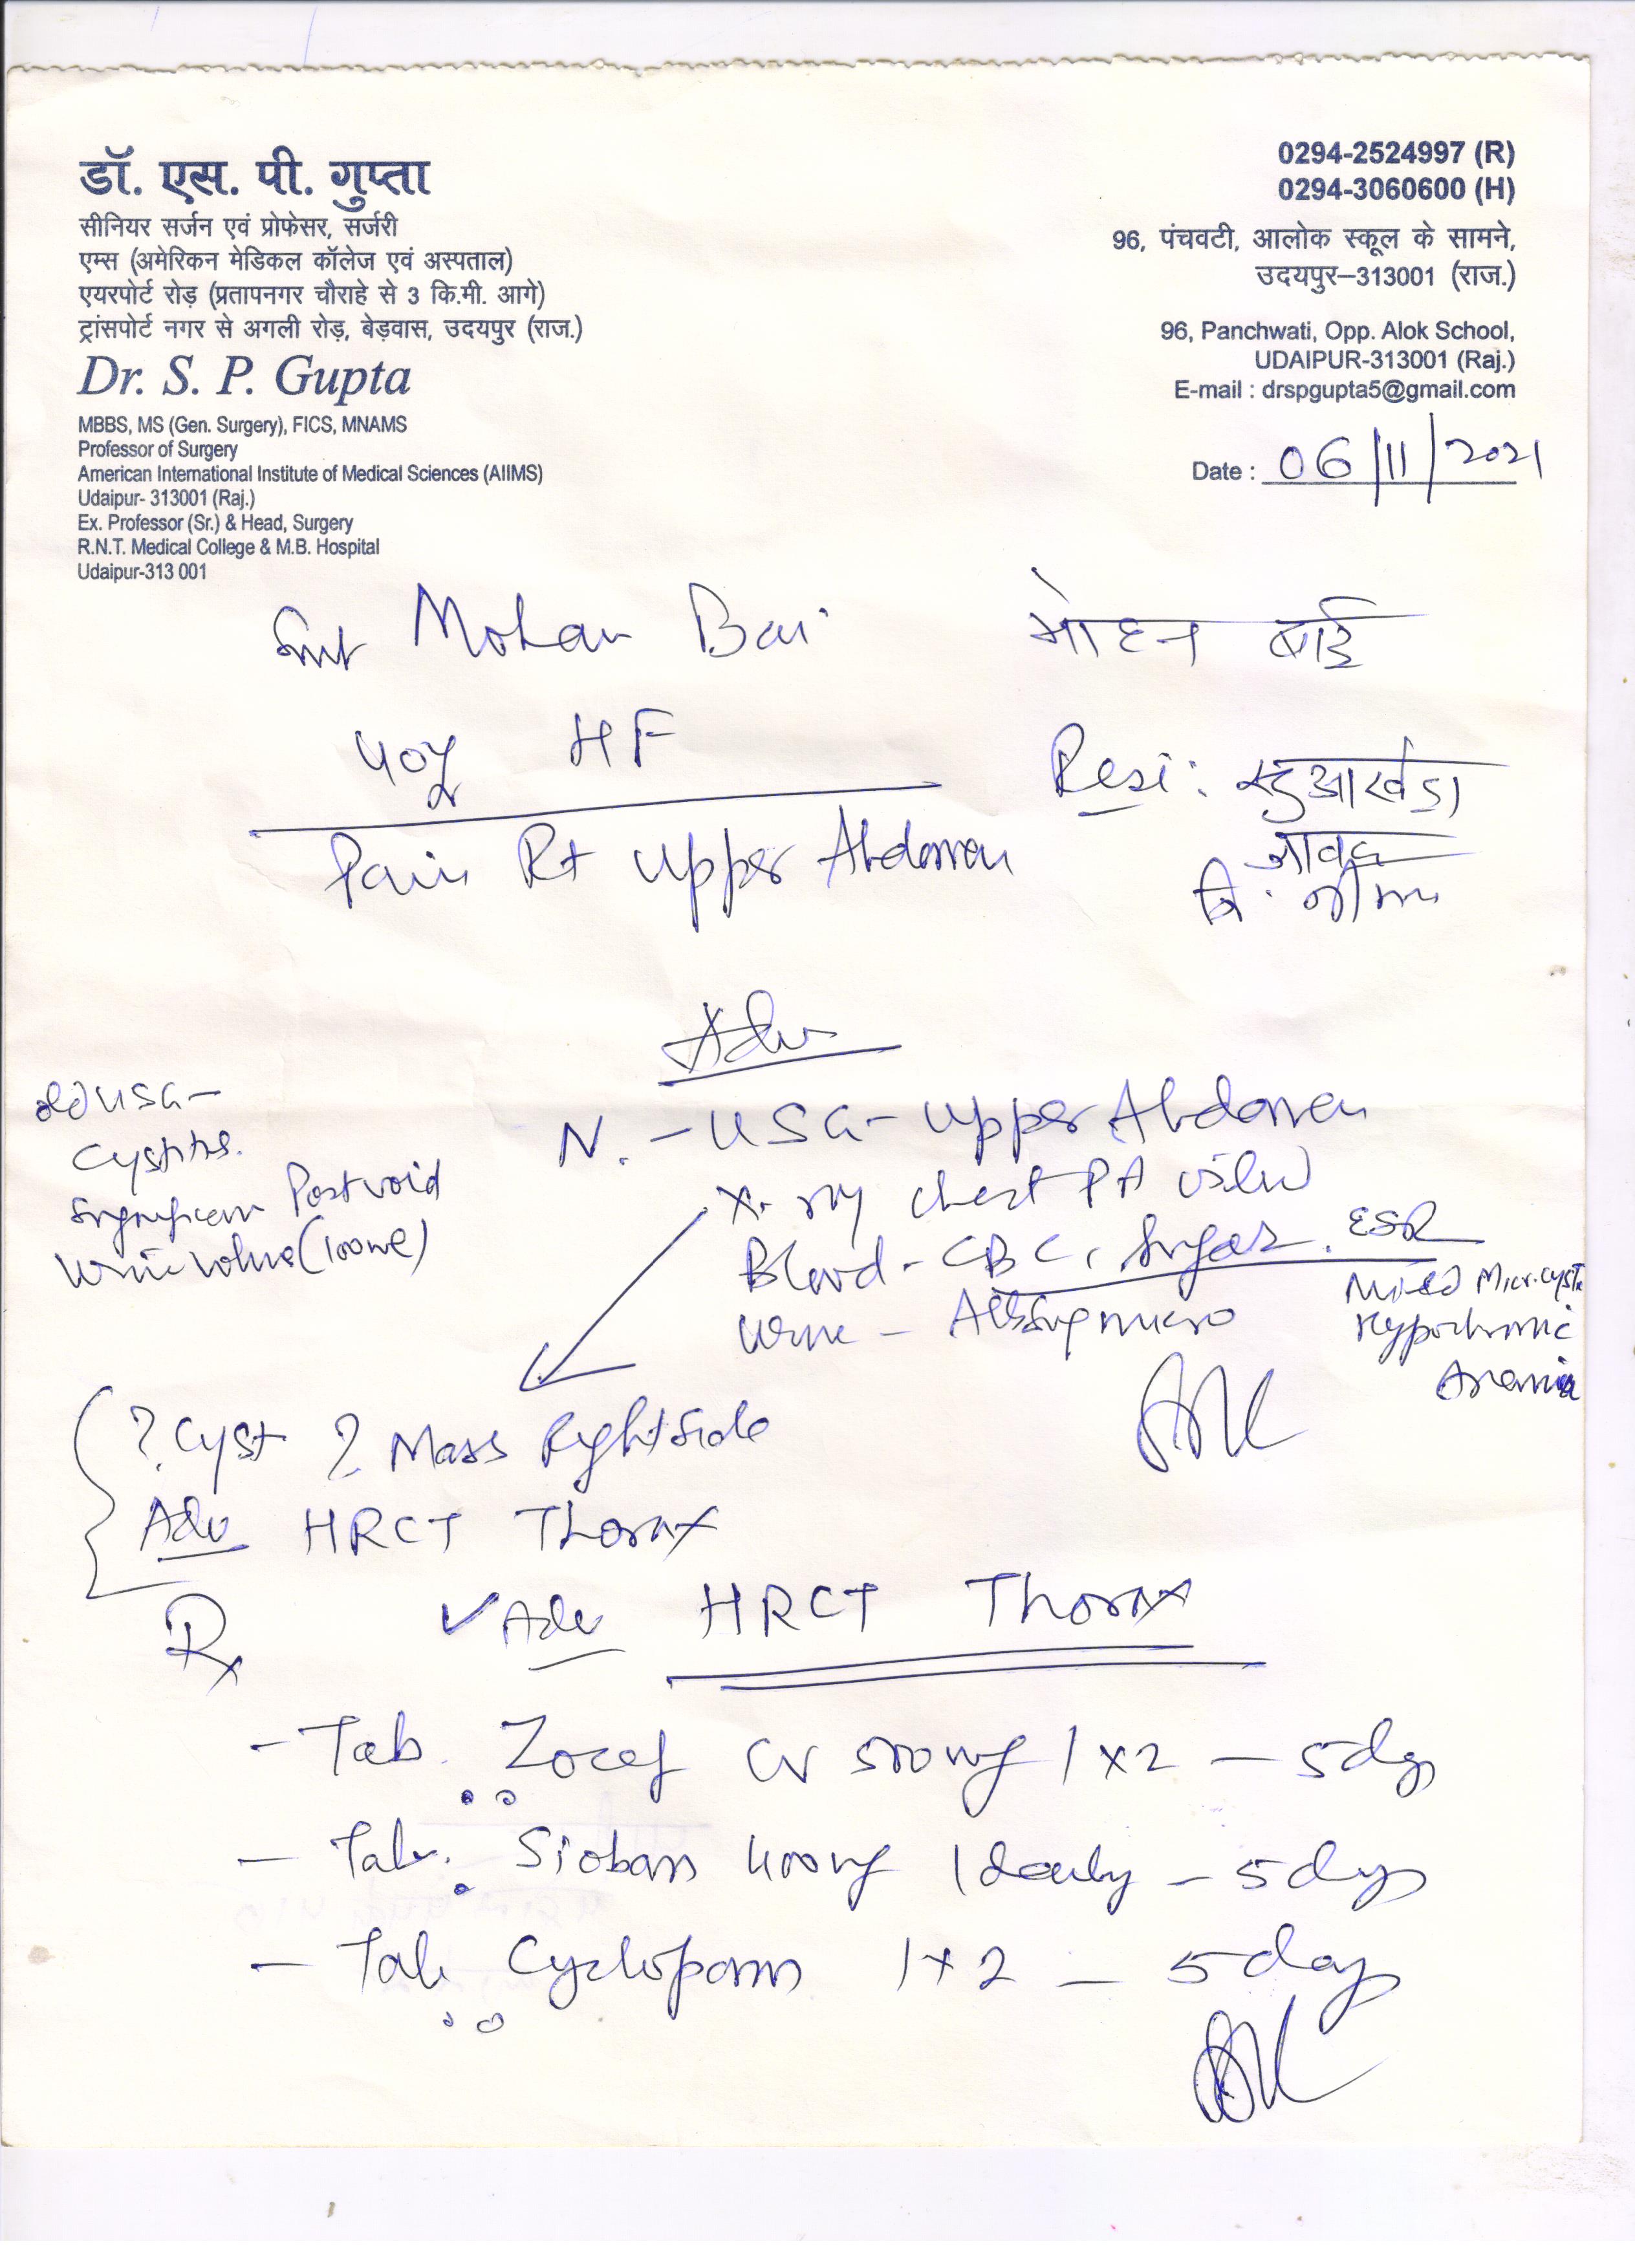 डॉ. एस. पी. गुप्ता
सीनियर सर्जन एवं प्रोफेसर, सर्जरी
एम्स (अमेरिकन मेडिकल कॉलेज एवं अस्पताल)
एयरपोर्ट रोड़ (प्रतापनगर चौराहे से 3 कि.मी. आगे)
ट्रांसपोर्ट नगर से अगली रोड़, बेड़वास, उदयपुर (राज.)
Dr. S. P. Gupta
MBBS, MS (Gen. Surgery), FICS, MNAMS
Professor of Surgery
American International Institute of Medical Sciences (AIIMS)
Udaipur- 313001 (Raj.)
Ex. Professor (Sr.) & Head, Surgery
R.N.T. Medical College & M.B. Hospital
Udaipur-313 001
0294-2524997 (R)
0294-3060600 (H)
96, पंचवटी, आलोक स्कूल के सामने,
उदयपुर–313001 (राज.)
96, Panchwati, Opp. Alok School,
UDAIPUR-313001 (Raj.)
E-mail : drspgupta5@gmail.com
Date : 06/11/2021
Smt Mohan Bai मोहन बाई
40y HF
Resi:
जावद
Pain Rt upper Abdomen
Adv
N. - USG - upper Abdomen
X-ray chest PA view
Blood - CBC, Sugar, ESR
Urine - micro
USG -
Cystitis.
Significant Postvoid
Urine volume (100ml)
Microcytic
Hypochromic
Anemia
? Cyst ? Mass Right side
Adv HRCT Thorax
Rx ✓ Adv HRCT Thorax
- Tab. Zocef CV 500mg 1x2 - 5dys
- Tab. 400mg 1 daily - 5dys
- Tab Cyclopam 1x2 - 5days